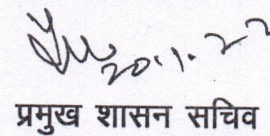 20.1.22
प्रमुख शासन सचिव